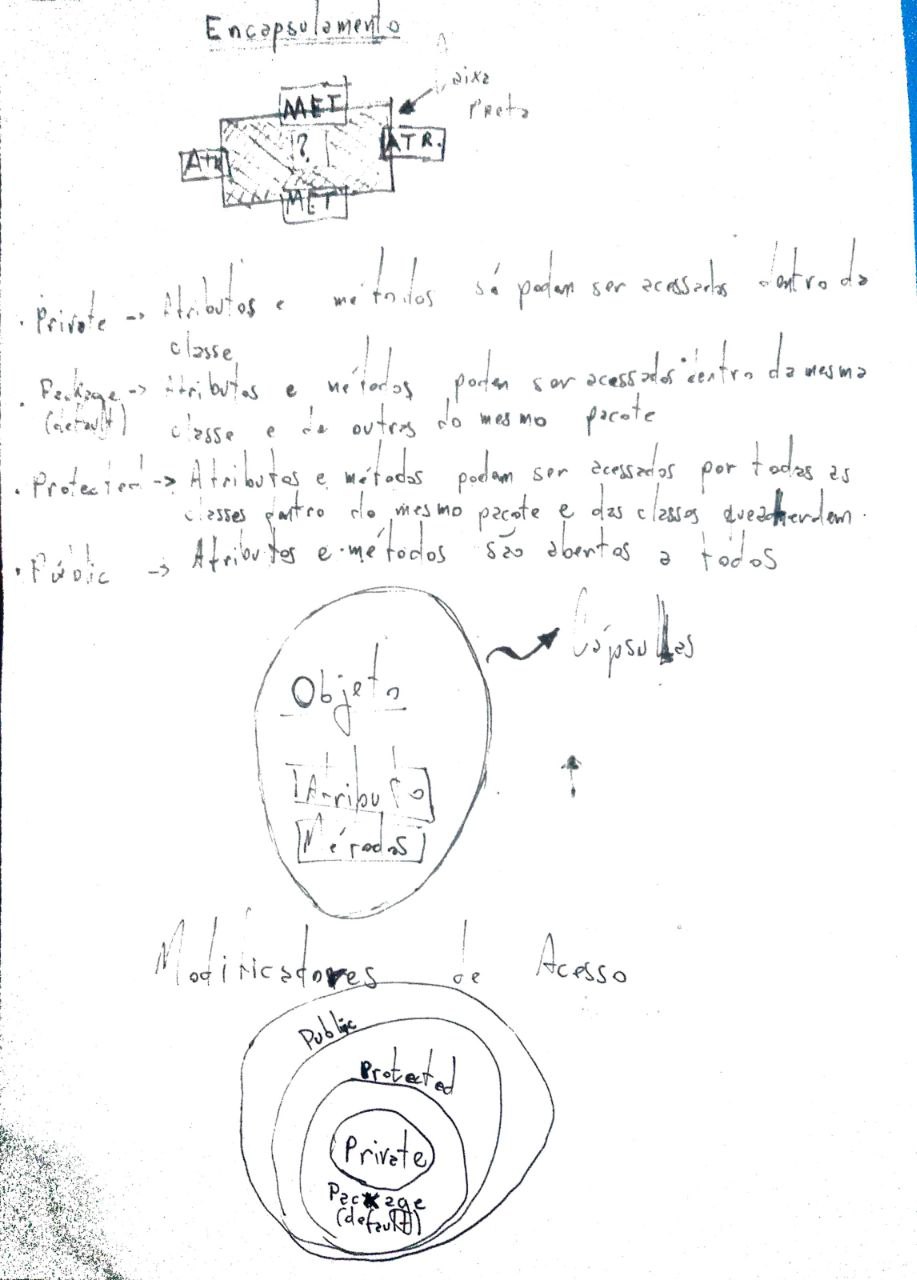 Encapsulamento
MET
aixa
Preta
?
Atr
ATR.
MET
. Private -> Atributos e métodos só podem ser acessados dentro da
classe
. Package -> Atributos e métodos podem ser acessados dentro da mesma
(default) classe e de outras do mesmo pacote
. Protected -> Atributos e métodos podem ser acessados por todas as
classes dentro do mesmo pacote e das classes que herdem.
. Públic -> Atributos e métodos são abertos a todos
Cápsulas
Objeto
Atributo
Métodos
Modificadores de Acesso
Public
Protected
Private
Package
(default)